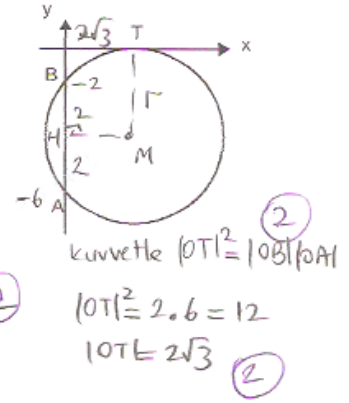 y
2√3 T
x
B
-2
2
r
H
M
2
-6 A
2
kuvvetle |OT|²=|OB||OA|
|OT|²=2.6=12
|OT|=2√3
2